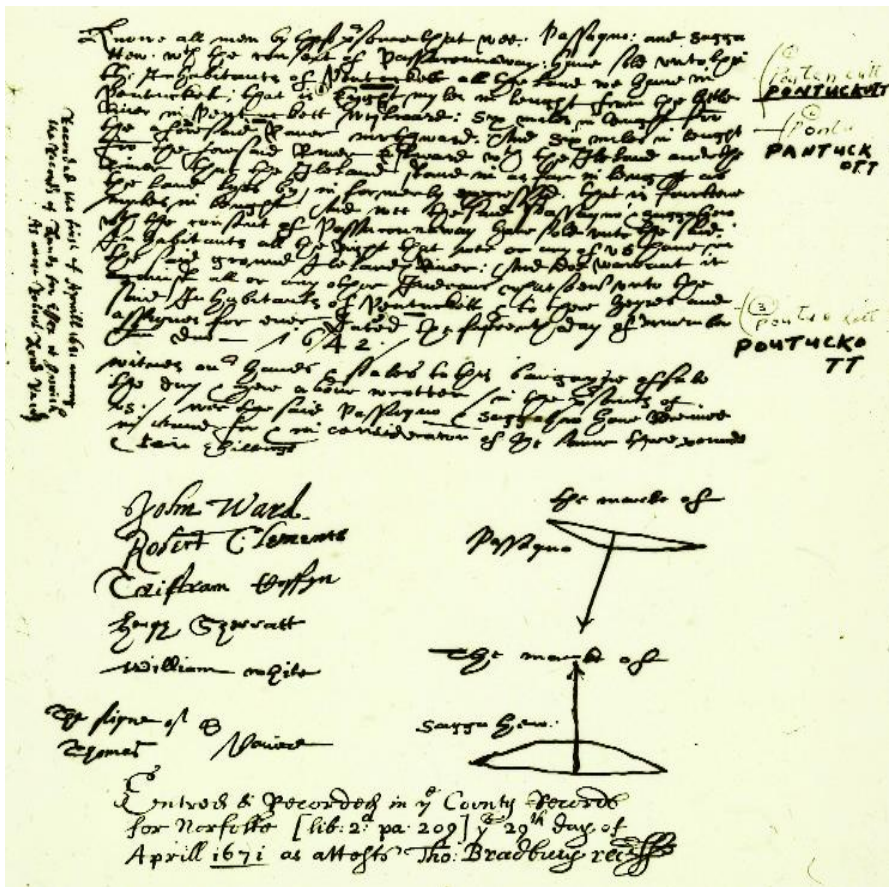 Knowe all men by these presents that wee: Passaquo: and Sagga
Hew: wth the consent of Passaconnaway: have sold unto the
Inhabitants of Pentuckett all the land we have in
Pentuckett; that is Eyght myles in lenght from the little
River in Pentuckett Westward: Six miles in lenght from
the aforesaid River northward: And six miles in lenght
from the foresaid River Eastward wth the Ileand and the
River that the Ileand stand in as far in lenght as
the land lyes by, in formerly expressed that is fourteene
myles in lenght And wee the said Passaquo Saggahew
wth the consent of Passaconnaway have sold unto the said
Inhabitants all the Right that wee or any of us have in
the said ground Ileand River: And doe warrant it
against all or any other Indeans whatsoever unto the
said Inhabitants of Pentuckett to there heyres and
assignes for ever Dated the fifteenth day of november
1642.
witnes our hands seales to this bargayne of sale
the day yere above written in the presents of
us: wee the said Passaquo Saggahew have Received
in hand, for in consideration of the same three pounds
tenn shillings
Recorded the first of Aprill 1681 among
the Records of Lands for Essex at Ipswich
As attest Robert Lord
PONTUCKOTT
PANTUCK
OTT
PONTUCKO
TT
John Ward
Robert Clements
Tristram Coffyn
William white
The signe of
Thomas Davice
The marke of
Passaquo
The marke of
Saggahew:
Entred & Recorded in ye County Records
for Norfolke [lib: 2d pa: 209] ye 29th day of
Aprill 1671 as attests Tho: Bradbury